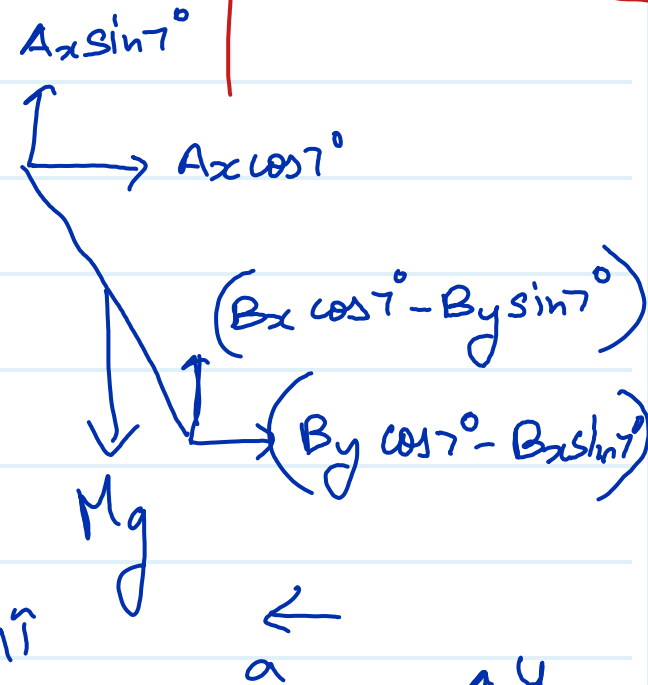 Ax sin7°
Ax cos7°
(Bx cos7° - By sin7°)
(By cos7° - Bx sin7°)
Mg
a